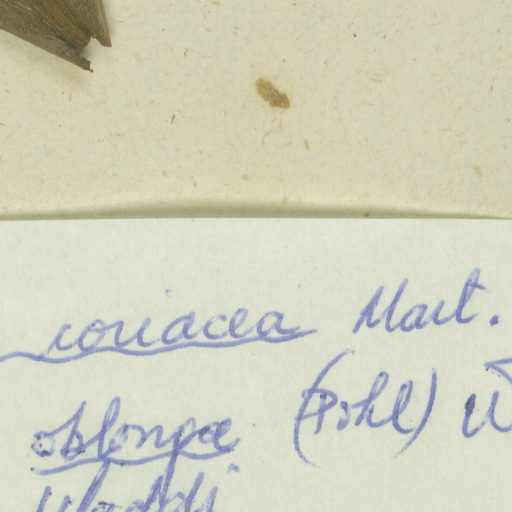 coriacea Mart.
oblongae (Pohl) W